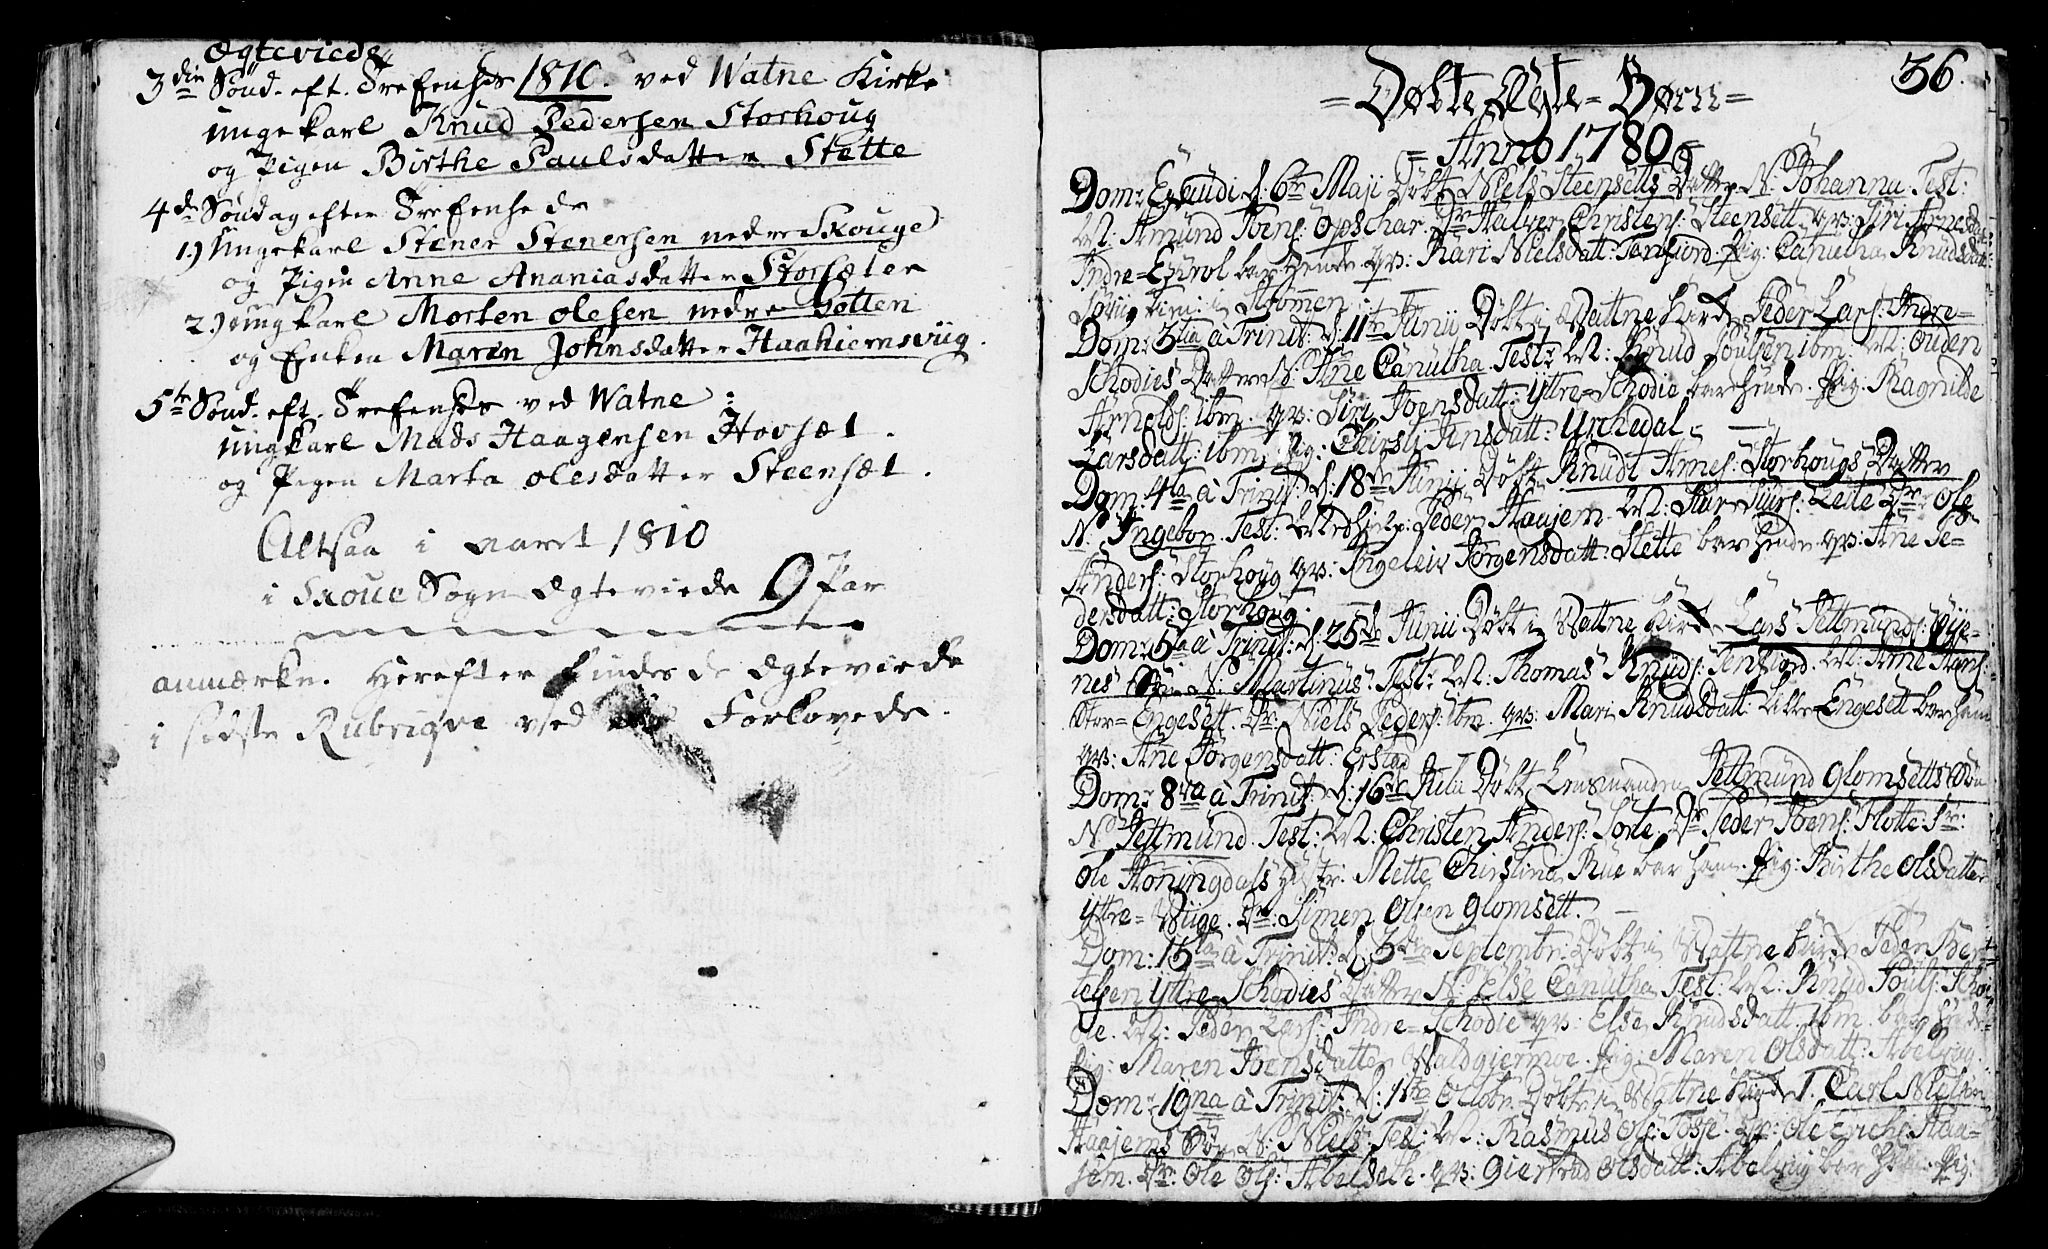 Ægteviede
3die Sönd. eft. Trefensh 1810. ved Watne Kirke
ungekarl Knud Pedersen Storhoug
og Pigen Birthe Paulsdatter Stette
4de Söndag efter Trefenhede
1.) Ungekarl Stener Stenersen nedre Skouge
og Pigen Anne Ananiasdatter Storsæter
2.) ungkarl Morten Olesen nedre Totten
og Enken Maren Johnsdatter Haahiemsviig.
5te Sönd. eft. Trefensh ved Watne:
ungkarl Mads Haagensen Hovsæt.
og Pigen Marta olesdatter Steensæt.
Altsaa i aaret 1810
i Skoue Sogn Ægteviede 9 Par
anmærkn. Herefter findes de Ægteviede
i sidste Rubrique ved Forlovede.
36.
= Døbte Ægte-Børn =
= Anno 1780 =
Dom: Exaudi d: 6te Maji Døbt Niels Steensetts Datter N: Johanna Test:
M: Amund Joens: Opschar. Dr Halver Christens: Steensett qv: Siri Arnesdatt:
Indre-Egirol bar hende qv: Kari Nielsdatt: Tenfiord. Pig: Canutha Knudsdatt:
Dom: 3tia à Trinit: d: 11te Junii Døbt i Vattne Kirke Peder Lars: Indre-
Schodies Datter N: Ane Canutha Test: M: Knud Poulsen ibm. M: Ouden
Arnelds: ibm. qv: Siri Joensdatt: Yttre-Schodie bar hende. Pig: Ragnilde
Larsdatt: ibm. Pig: Chirsti Jensdatt: Urchedal. —
Dom: 4ta à Trinit: d: 18de Junii Døbt Knudt Arnes: Storhougs Datter
N: Ingebor. Test: Medhielp: Peder Haajem. M: Siur Siurs: Leite Dr: Ole
Anders: Storhoug qv: Ingeleiv Jörgensdatt: Stette bar hende qv: Ane Pe-
dersdatt: Storhoug. —
Dom: 5ta à Trinit: d: 25de Junii Døbt i Vattne Kirke Lars Jettmunds: Vije-
nes Søn N: Martinus. Test: M: Thomas Knuds: Tenfiord. M: Arne Hans:
Stor-Engesett. Dr: Niels Peders: ibm. qv: Mari Knudsdatt: Lille Engesett bar ham
qv: Ane Jörgensdatt: Erstad
Dom: 8va à Trinit: d: 16de Julii Døbt Lensmanden Jettmund Glomsetts Søn
N: Jettmund. Test: M: Christen Anders: Sorte, Dr Peder Joens: Flotte. Hr:
Ole Honingdals Hustr. Mette Chirstina Rue bar ham. Pig: Birthe Olsdatter
Yttre-Viige. Dr: Simen Olsen Glomsett. —
Dom: 15ta à Trinit: d: 3de Septembr: Døbt i Vattne Kirke Peder Ber-
telsen Yttre-Schodies Datter N: Else Canutha Test: M: Knud Pouls: Scho-
die. M: Peder Lars: Indre-Schodie qv: Else Knudsdatt: ibm. bar hende
Pig: Maren Joensdatter Valdgiermoe. Pig: Maren Olsdatt: Abelvig.
Dom: 19na à Trinit: d: 1ste Octobr Døbt i Vattne Kirke 1. Carl Nielsen
Haajems Søn N: Niels. Test: M: Rasmus Ols: Tosse. Dr: Ole Erichs: Haa-
jem. Dr: Ole Ols: Abelseth. qv: Giertrud Olsdatt: Abelvig bar ham. Pig: